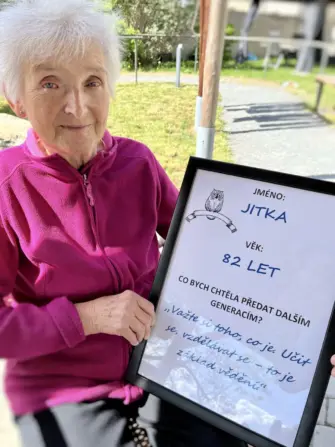 JMÉNO:
JITKA
VĚK:
82 LET
CO BYCH CHTĚLA PŘEDAT DALŠÍM
GENERACÍM?
„Važte si toho, co je. Učit
se, vzdělávat se – to je
základ vědění."